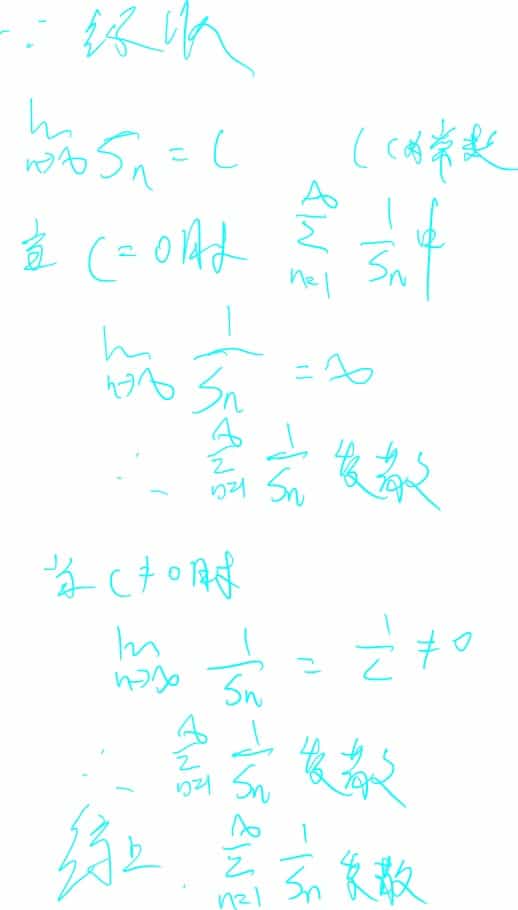 ∵ 级收
lim n→∞ Sn = C (C为常数
当 C = 0 时 ∞ Σ n=1 1/Sn 中
lim n→∞ 1/Sn = ∞
∴ ∞ Σ n=1 1/Sn 发散
当 C ≠ 0 时
lim n→∞ 1/Sn = 1/C ≠ 0
∴ ∞ Σ n=1 1/Sn 发散
综上. ∞ Σ n=1 1/Sn 发散